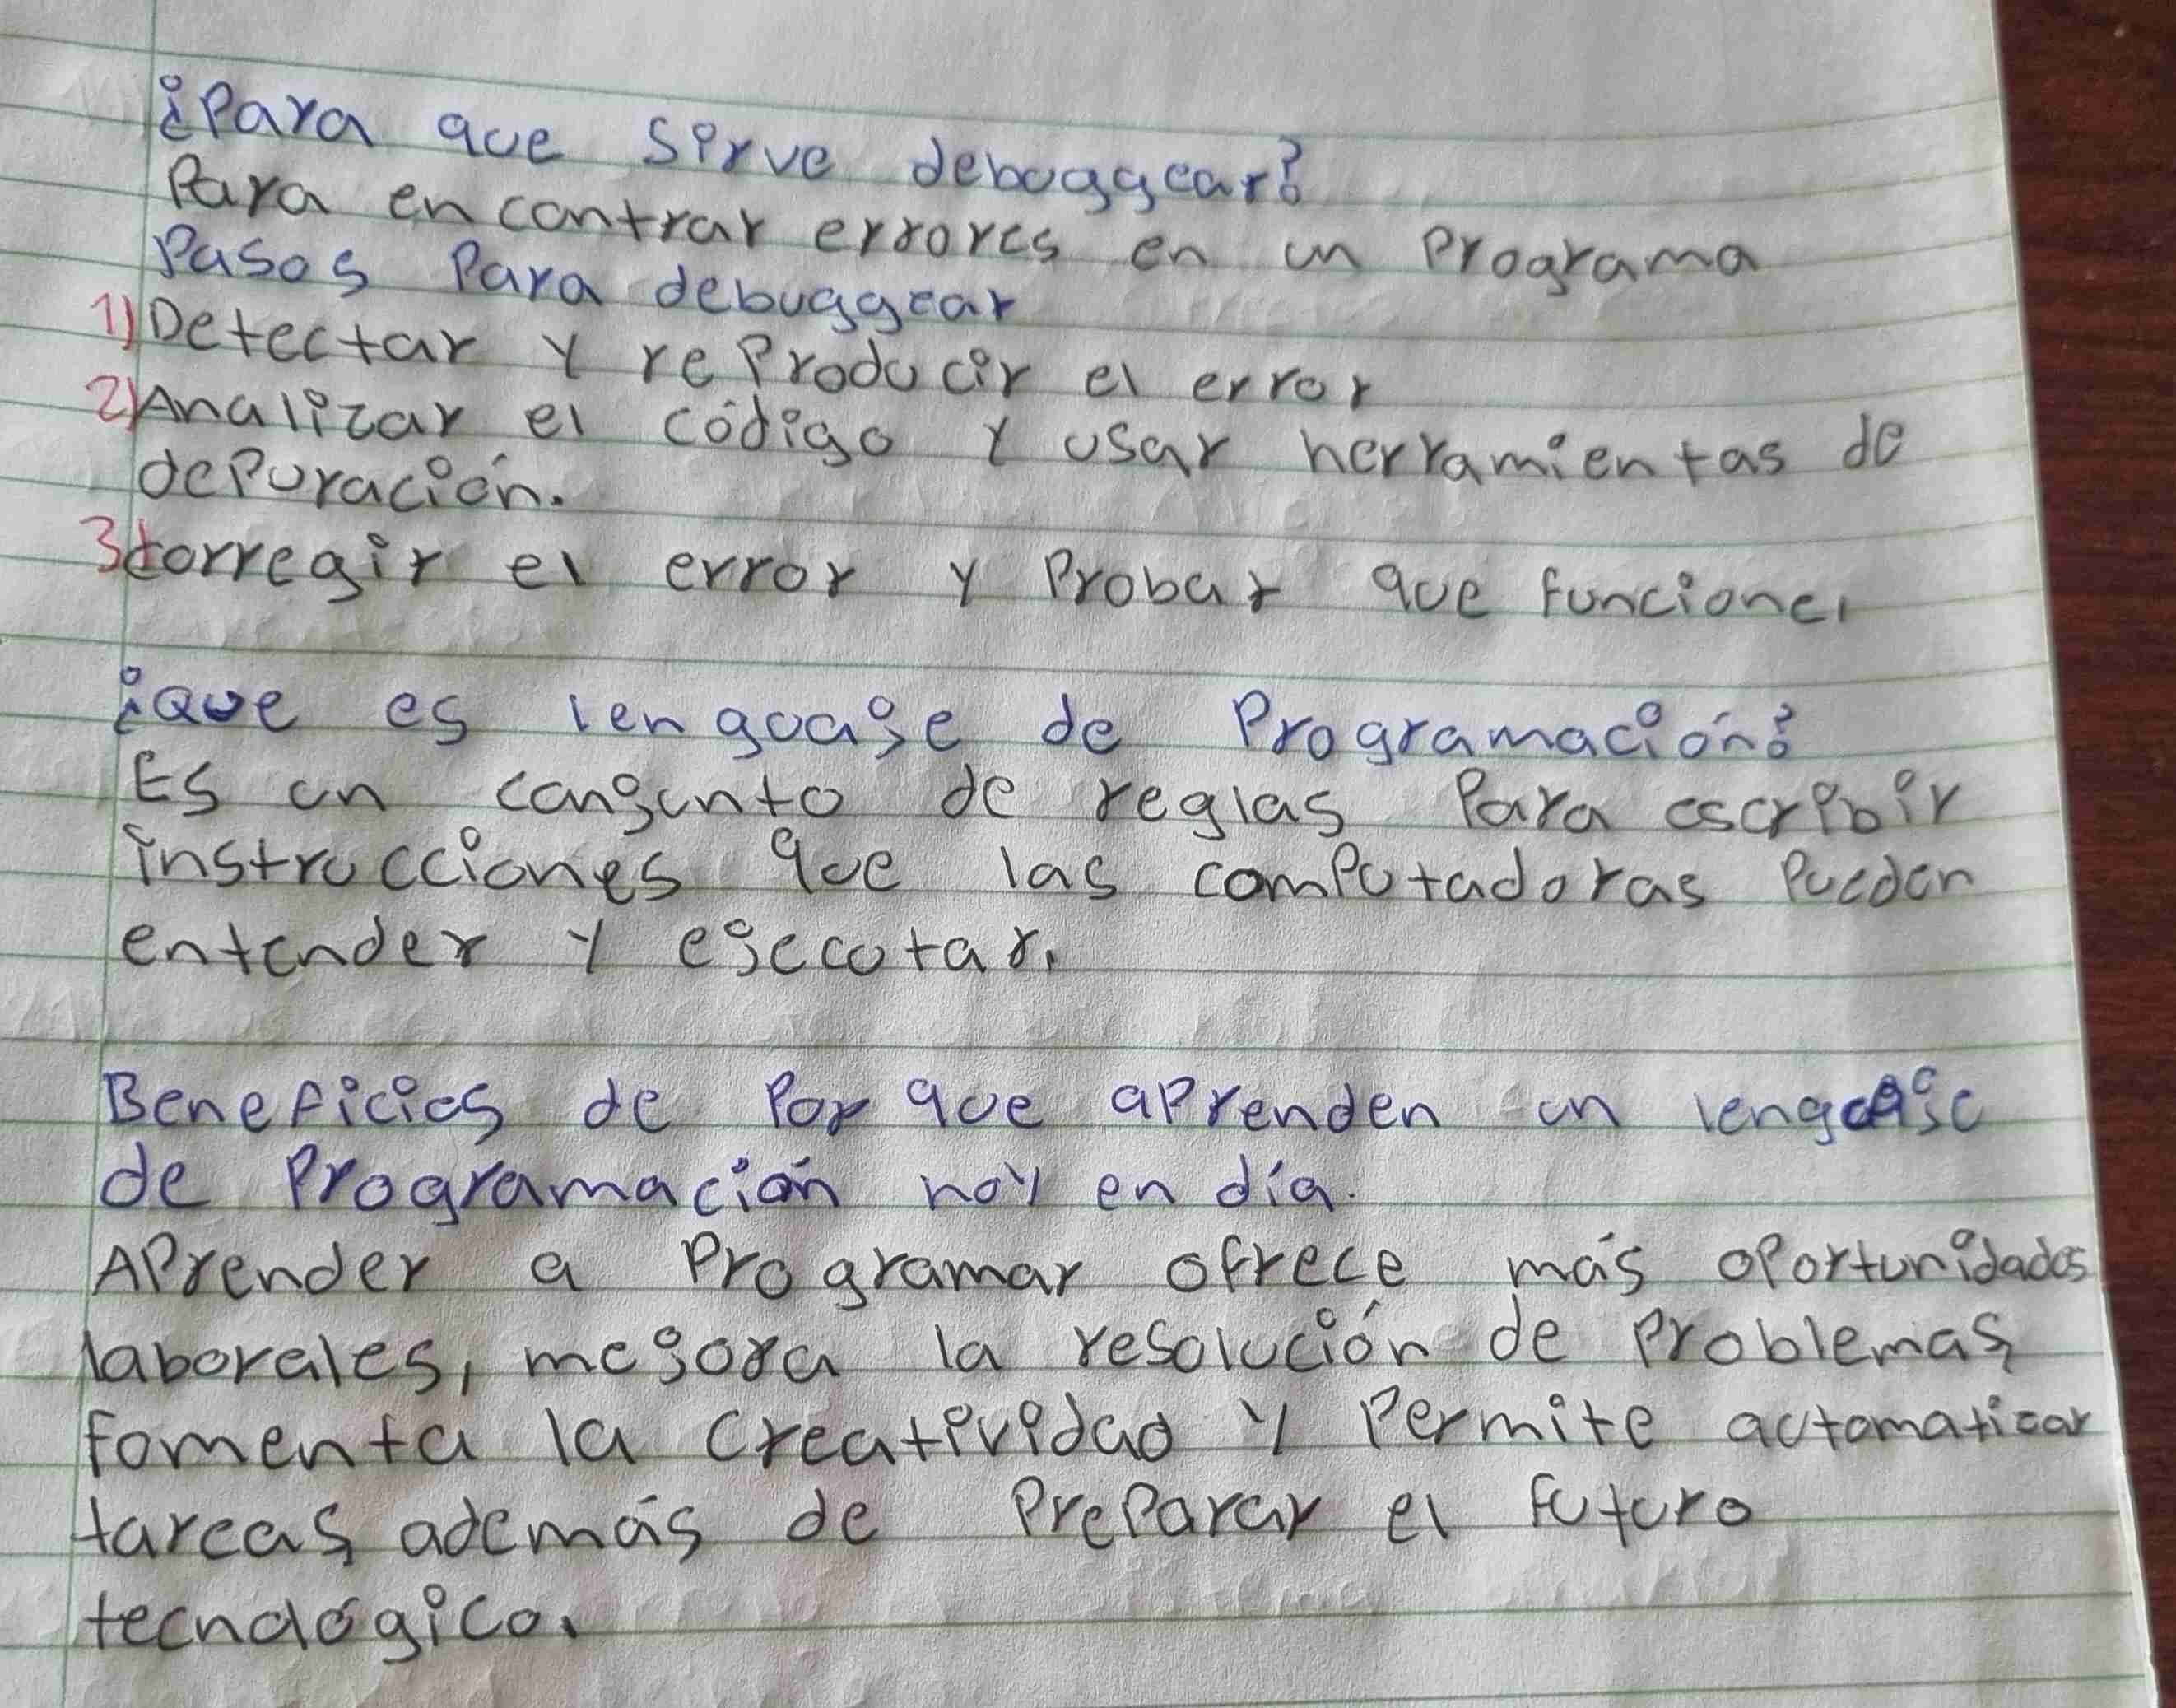 ¿Para que sirve debuggear?
Para encontrar errores en un Programa
Pasos Para debuggear
1) Detectar y reProducir el error
2) Analizar el código y usar herramientas de
dePuración.
3) Corregir el error y Probar que funcione.
¿Que es lenguaje de Programación?
Es un conjunto de reglas Para escribir
instrucciones que las comPutadoras Pueden
entender y ejecutar.
Beneficios de Por que aPrenden un lenguaje
de Programación hoy en día.
APrender a Programar ofrece más oPortunidades
laborales, mejora la resolución de Problemas,
fomenta la creatividad y Permite automatizar
tareas, además de PreParar el futuro
tecnológico.